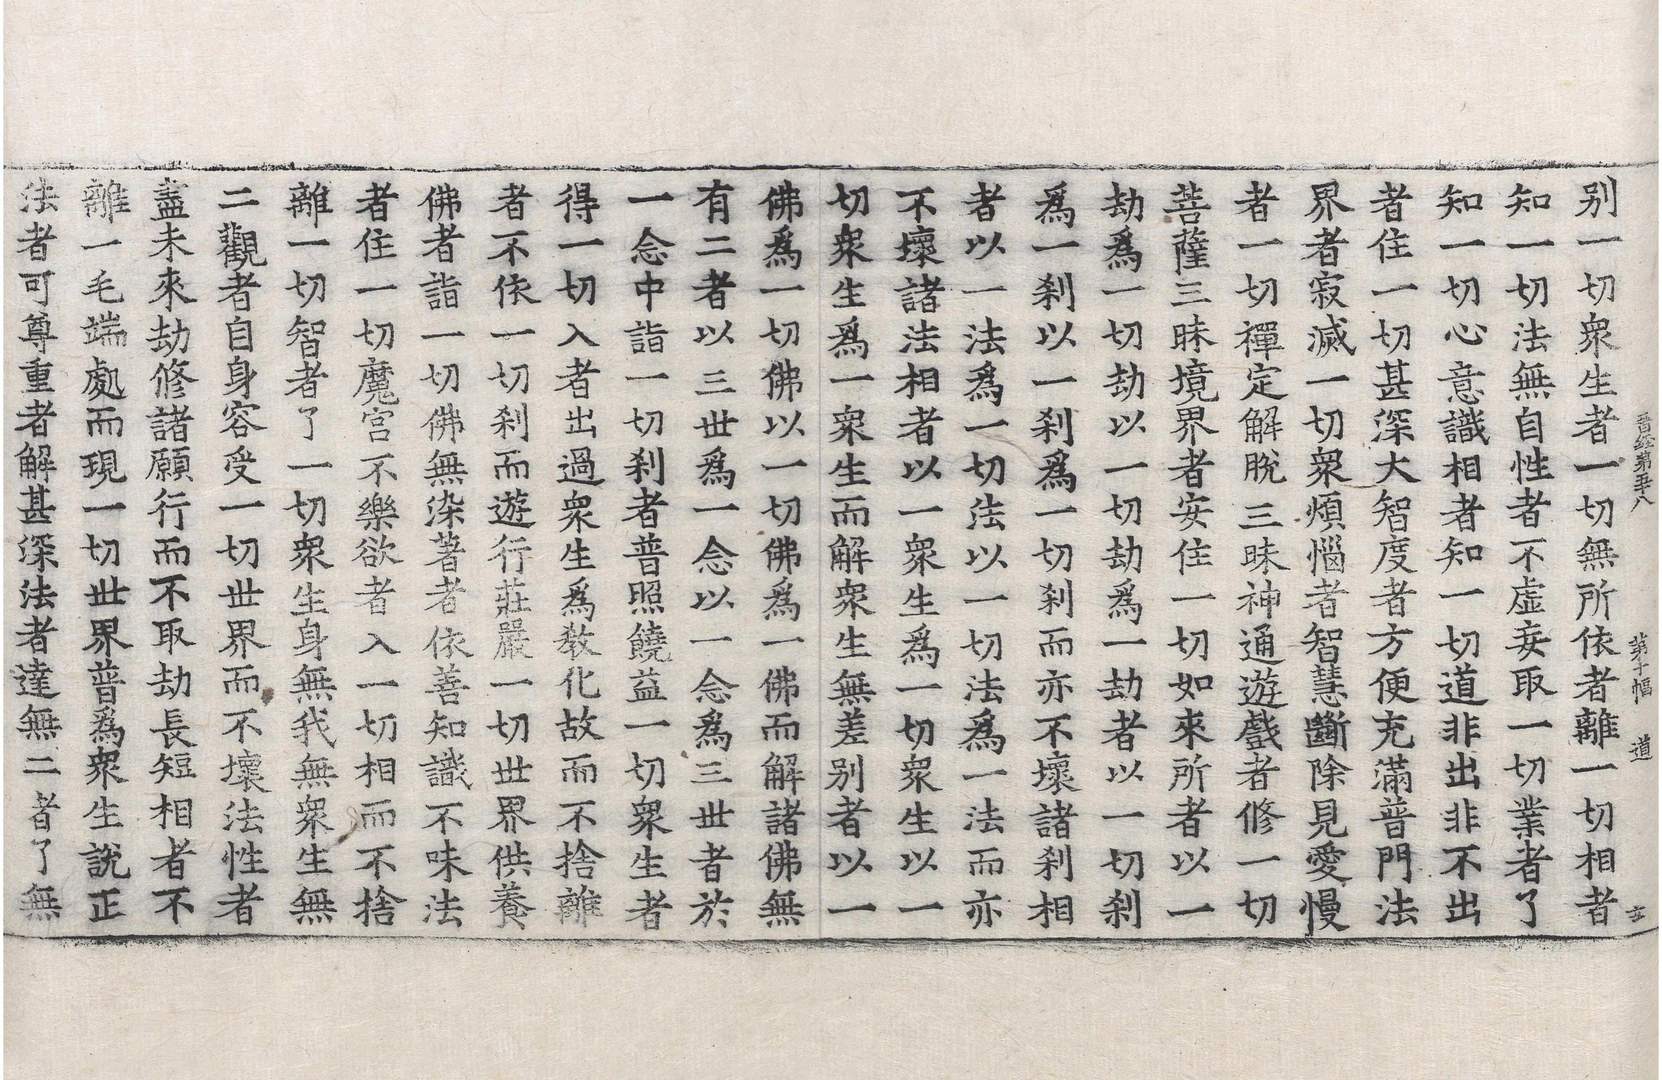 晉經第五十八 第十幅 道 玄
别一切衆生者一切無所依者離一切相者
知一切法無自性者不虛妄取一切業者了
知一切心意識相者知一切道非出非不出
者住一切甚深大智度者方便充滿普門法
界者寂滅一切衆煩惱者智慧斷除見愛慢
者一切禪定解脫三昧神通遊戲者修一切
菩薩三昧境界者安住一切如來所者以一
劫爲一切劫以一切劫爲一劫者以一切刹
爲一刹以一刹爲一切刹而亦不壞諸刹相
者以一法爲一切法以一切法爲一法而亦
不壞諸法相者以一衆生爲一切衆生以一
切衆生爲一衆生而解衆生無差别者以一
佛爲一切佛以一切佛爲一佛而解諸佛無
有二者以三世爲一念以一念爲三世者於
一念中詣一切刹者普照饒益一切衆生者
得一切入者出過衆生爲教化故而不捨離
者不依一切刹而遊行莊嚴一切世界供養
佛者詣一切佛無染著者依善知識不味法
者住一切魔宫不樂欲者入一切相而不捨
離一切智者了一切衆生身無我無衆生無
二觀者自身容受一切世界而不壞法性者
盡未來劫修諸願行而不取劫長短相者不
離一毛端處而現一切世界普爲衆生說正
法者可尊重者解甚深法者達無二者了無